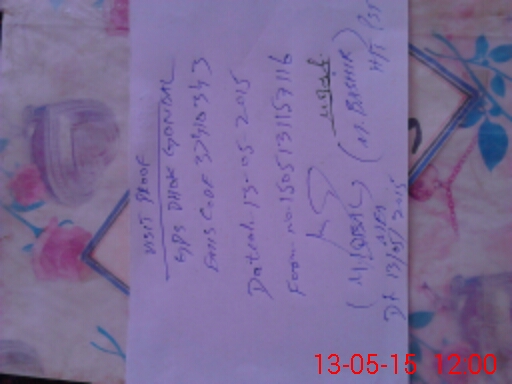 VISIT PROOF
GPS DHOK GONDAL
EMIS Code 37410343
Dated. 13-05-2015
Form no. 150513115716
(M. IQBAL)
MEA
Dt 13/05/2015
(M. BASHIR)
13-05-15 12:00